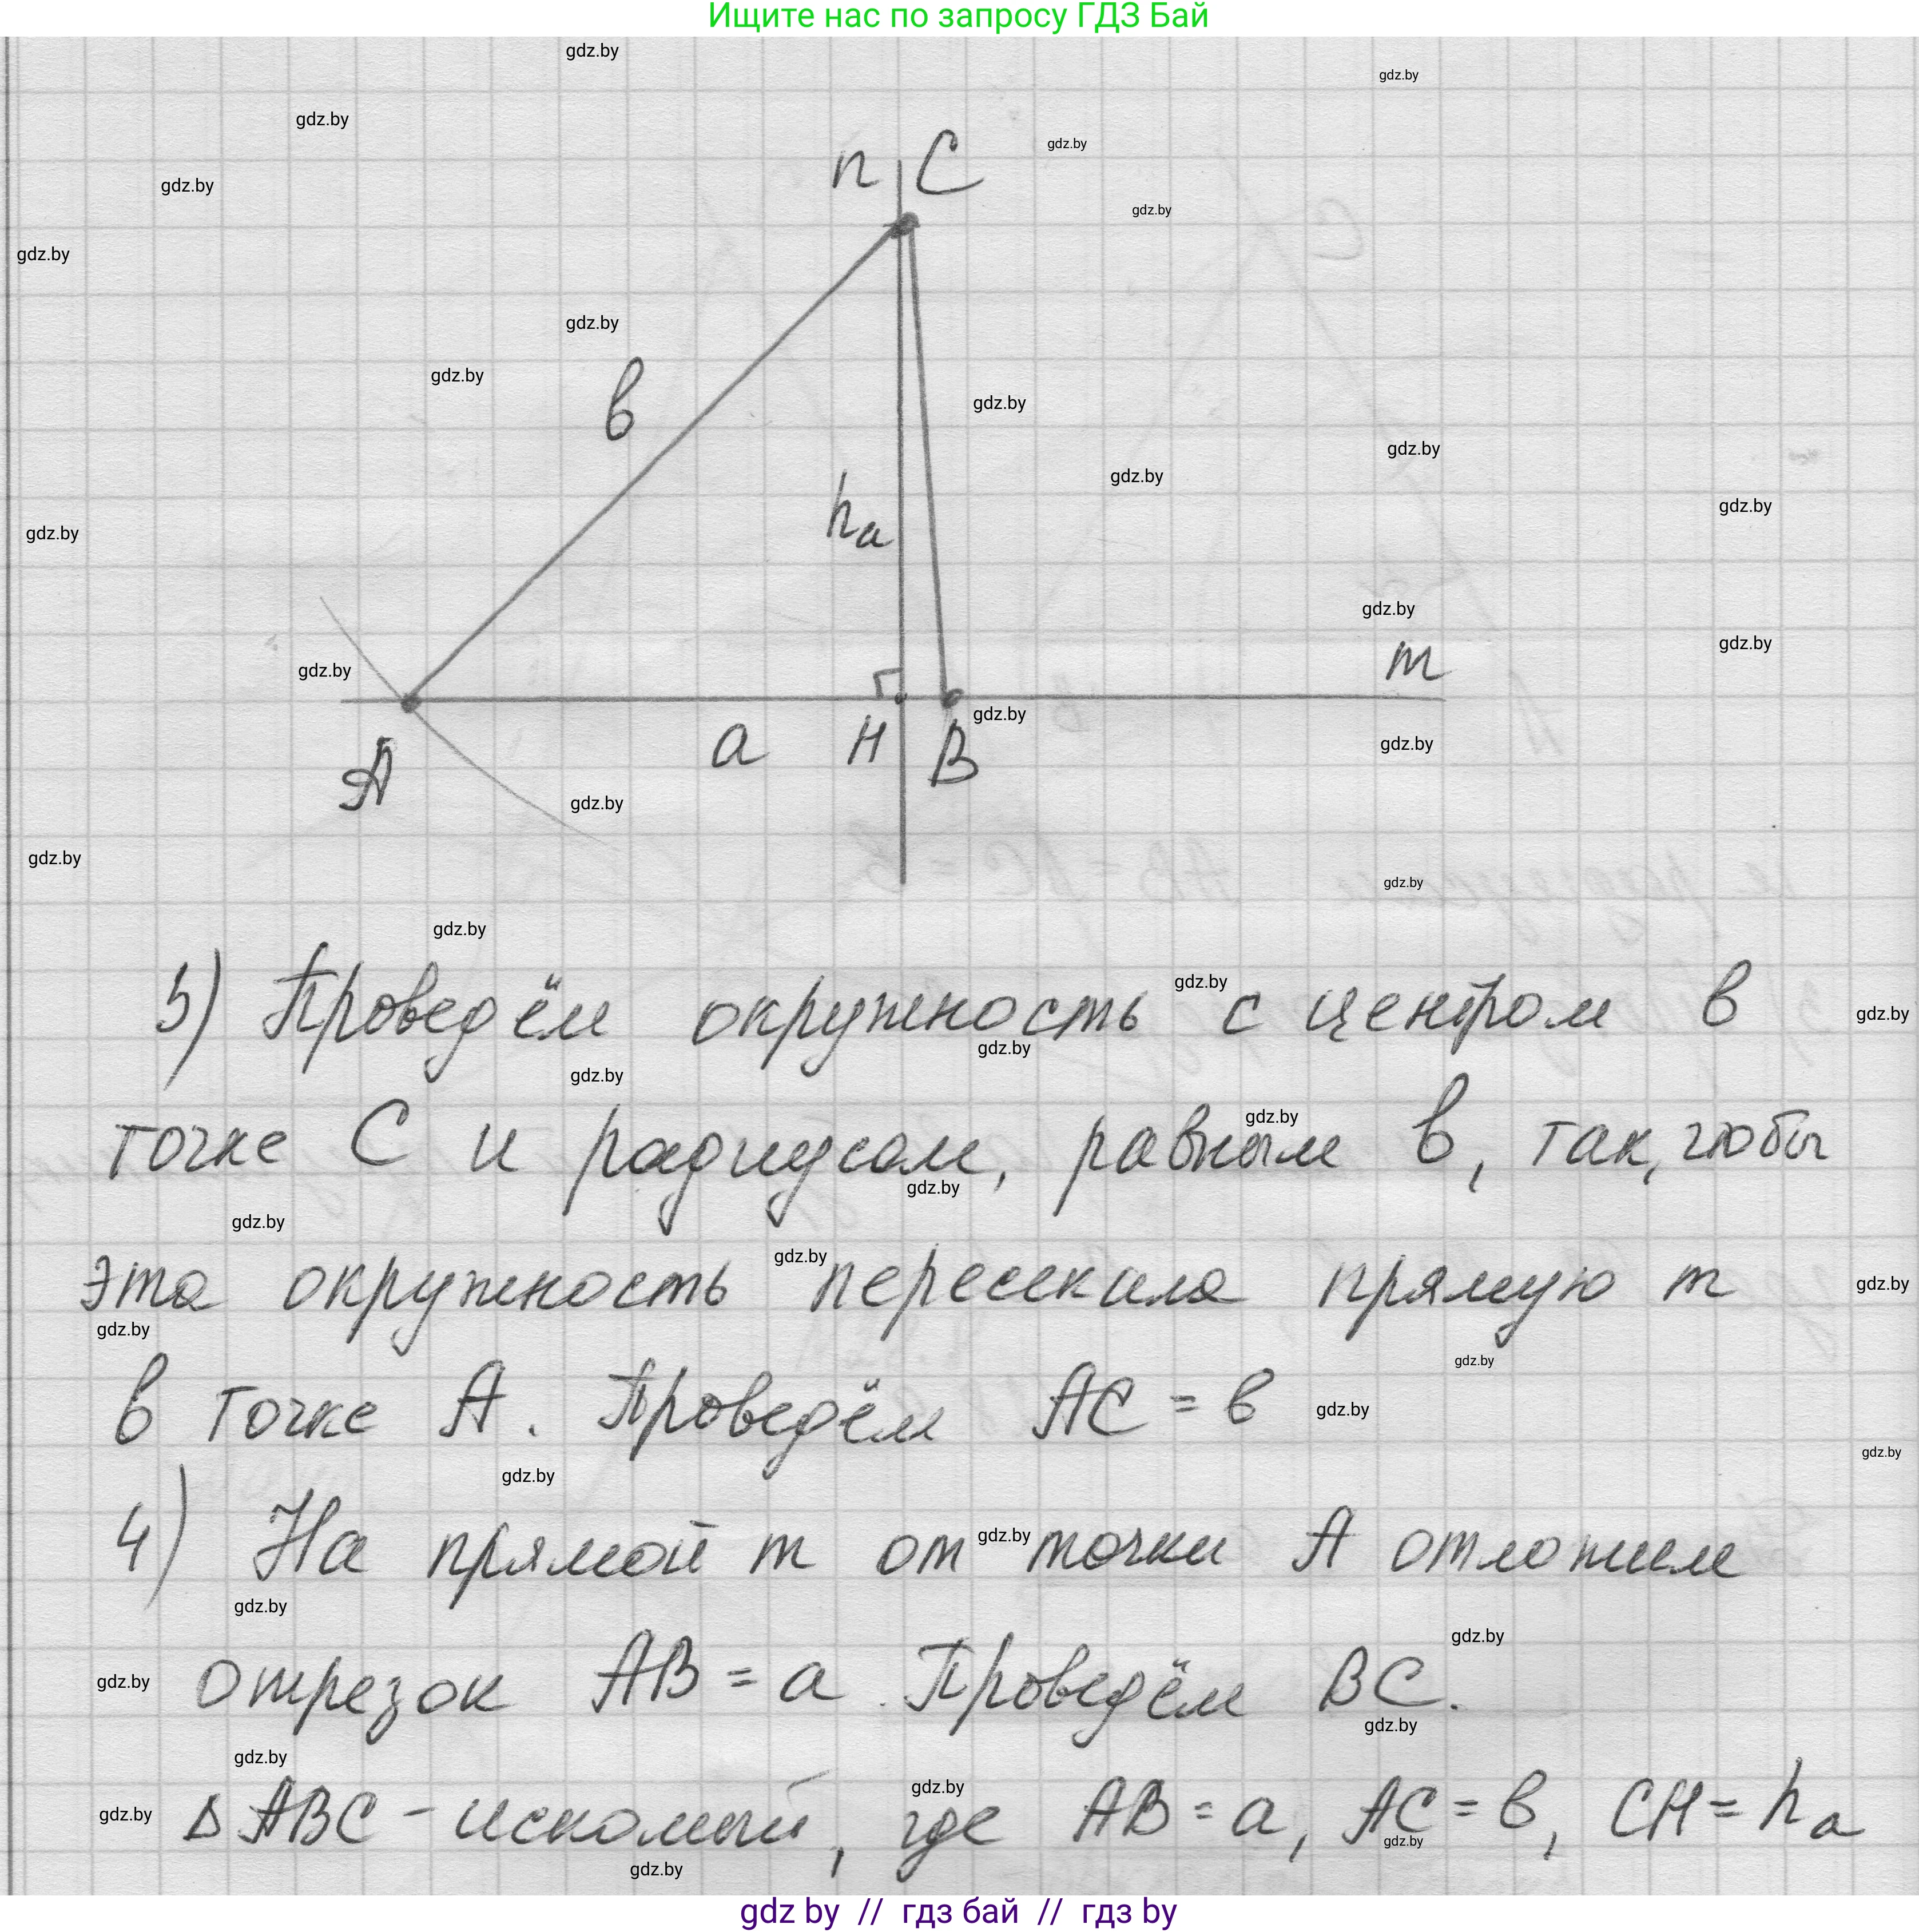 Ищите нас по запросу ГДЗ Бай
n C
в
hа
m
a H B
A
3) Проведём окружность с центром в
точке C и радиусом, равным в, так, чтобы
эта окружность пересекала прямую m
в точке A. Проведём AC = в
4) На прямой m от точки A отложим
отрезок AB = a. Проведём BC.
Δ ABC - искомый, где AB = a, AC = в, CH = hа
gdz.by // гдз бай // гдз by